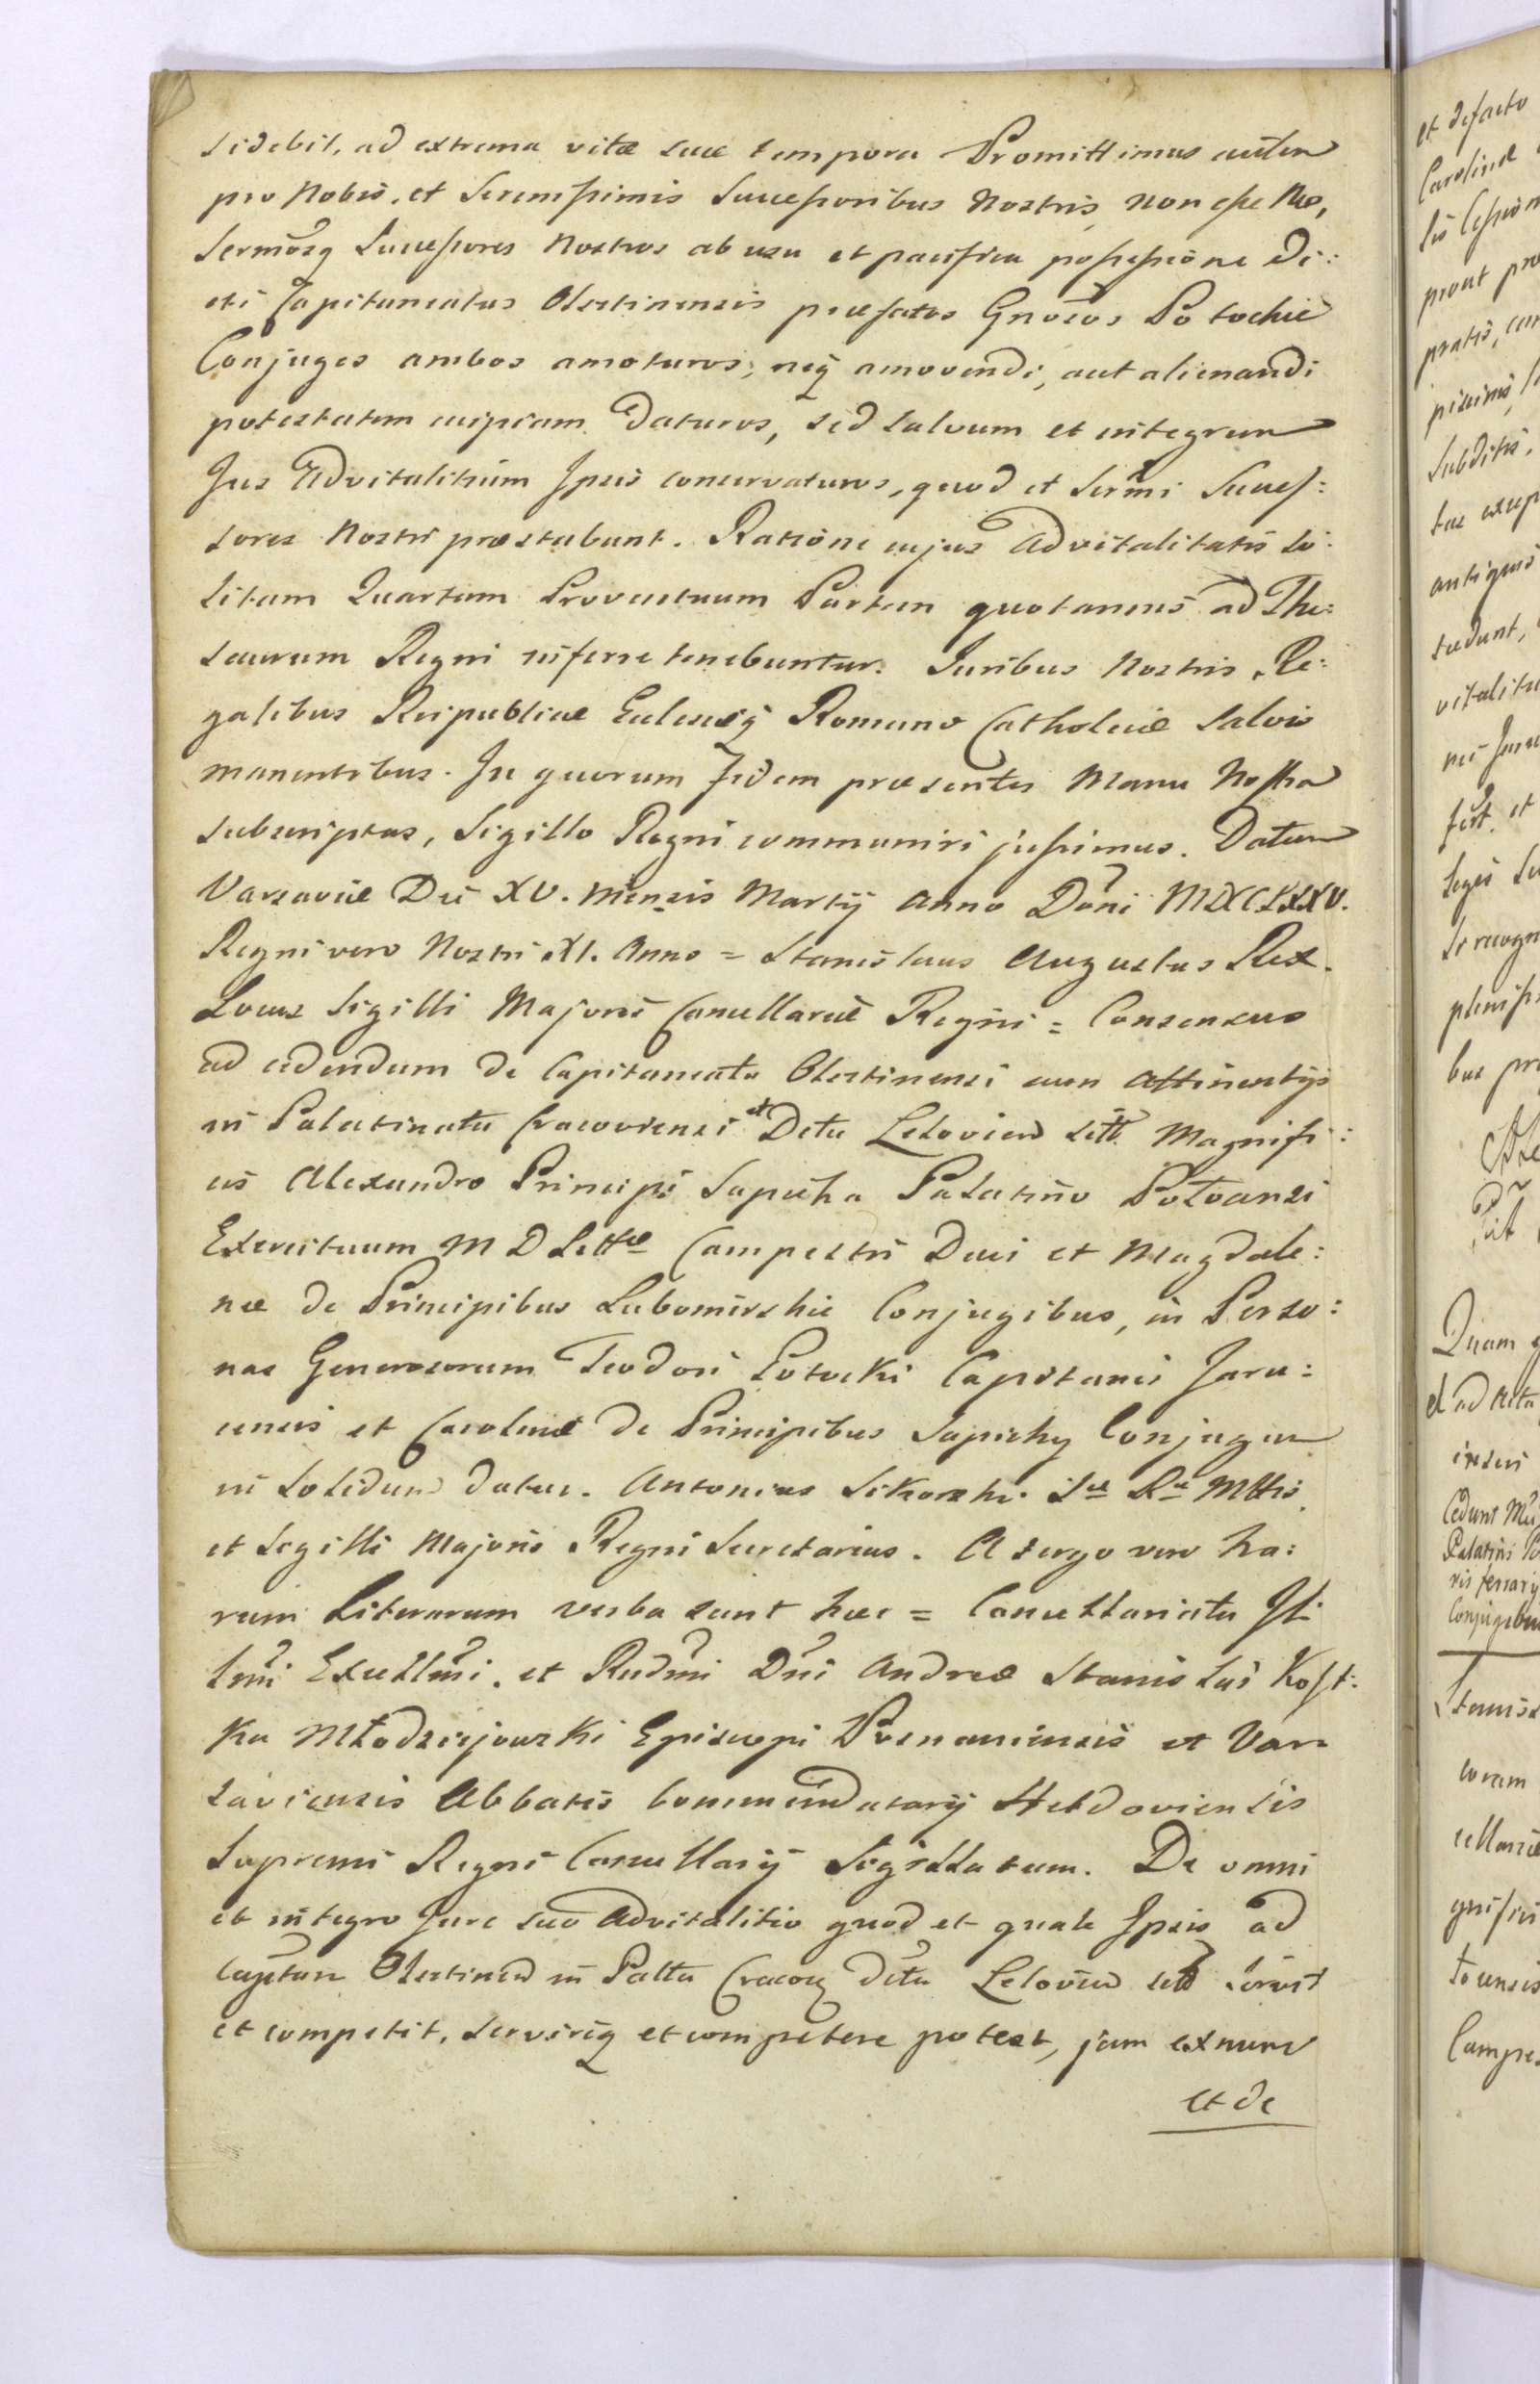 sidebit, ad extrema vitæ suæ tempora Promittimus autem
pro Nobis, et Serenissimis Successoribus Nostris, non esse Nos,
Sermosq Successores Nostros ab usu et pacifica possessione di:
cti Capitaneatus Olsztinensis præfatos Gnosos Potockie
Conjuges ambos amoturos, neq amovendi, aut alienandi
potestatem cuipiam daturos, sed salvum et integrum
Jus Advitalitium Ipsis conservaturos, quod et Sermi Succes:
sores Nostri præstabunt. Ratione cujus Advitalitatis so:
litam Quartam Proventuum Partem quotannis ad The:
saurum Regni inferre tenebuntur. Juribus Nostris, Re:
galibus Reipublicæ Eclesieq Romano Catholicæ salvis
manentibus. In quorum Fidem præsentes Manu Nostra
subscriptas, Sigillo Regni communiri jussimus. Datum
Varsaviæ Die XV. Mensis Martij Anno Dni MDCCLXXV.
Regni vero Nostri XI. Anno = Stanislaus Augustus Rex.
Locus Sigilli Majoris Cancellariæ Regni = Consensus
ad cedendum de Capitaneatu Olsztinensi cum attinentijs
in Palatinatu Cracoviensi et Dctu Leloviend sitt. Magnifi:
cis Alexandro Principi Sapieha Palatino Połocensi
Exercituum M D Littæ Campestri Duci et Magdale:
næ de Principibus Lubomirskie Conjugibus, in Perso:
nas Generosorum Teodori Potocki Capitanei
et Carolinæ de Principibus Sapiehy Conjugum
in solidum datus. Antonius Sikorski Sæ Ræ Mttis
et Sigilli Majoris Regni Secretarius. A tergo vero ha:
rum Literarum verba sunt hæc = Cancellariatu Il:
lmi Excellmi, et Rudmi Dni Andreæ Stanislai Kost:
ka Młodziejowski Episcopi Posnaniensis et Var:
saviensis Abbatis Commendatarij Hebdoviensis
Supremi Regni Cancellarij Sigillatum. De omni
et integro Jure suo Advitalitio quod et quale Ipsis ad
Capitan Olsztinen in Palttu Cracov dctu Leloviend sitt servit
et competit, servireq et competere potest, jam exnunc
et de
et defacto
Carolinæ
prout
pratis,
subditis,
antiquis
vitalita
et
bus
Quam
ad Acta
Cedunt
Palatini
Conjugibus
coram